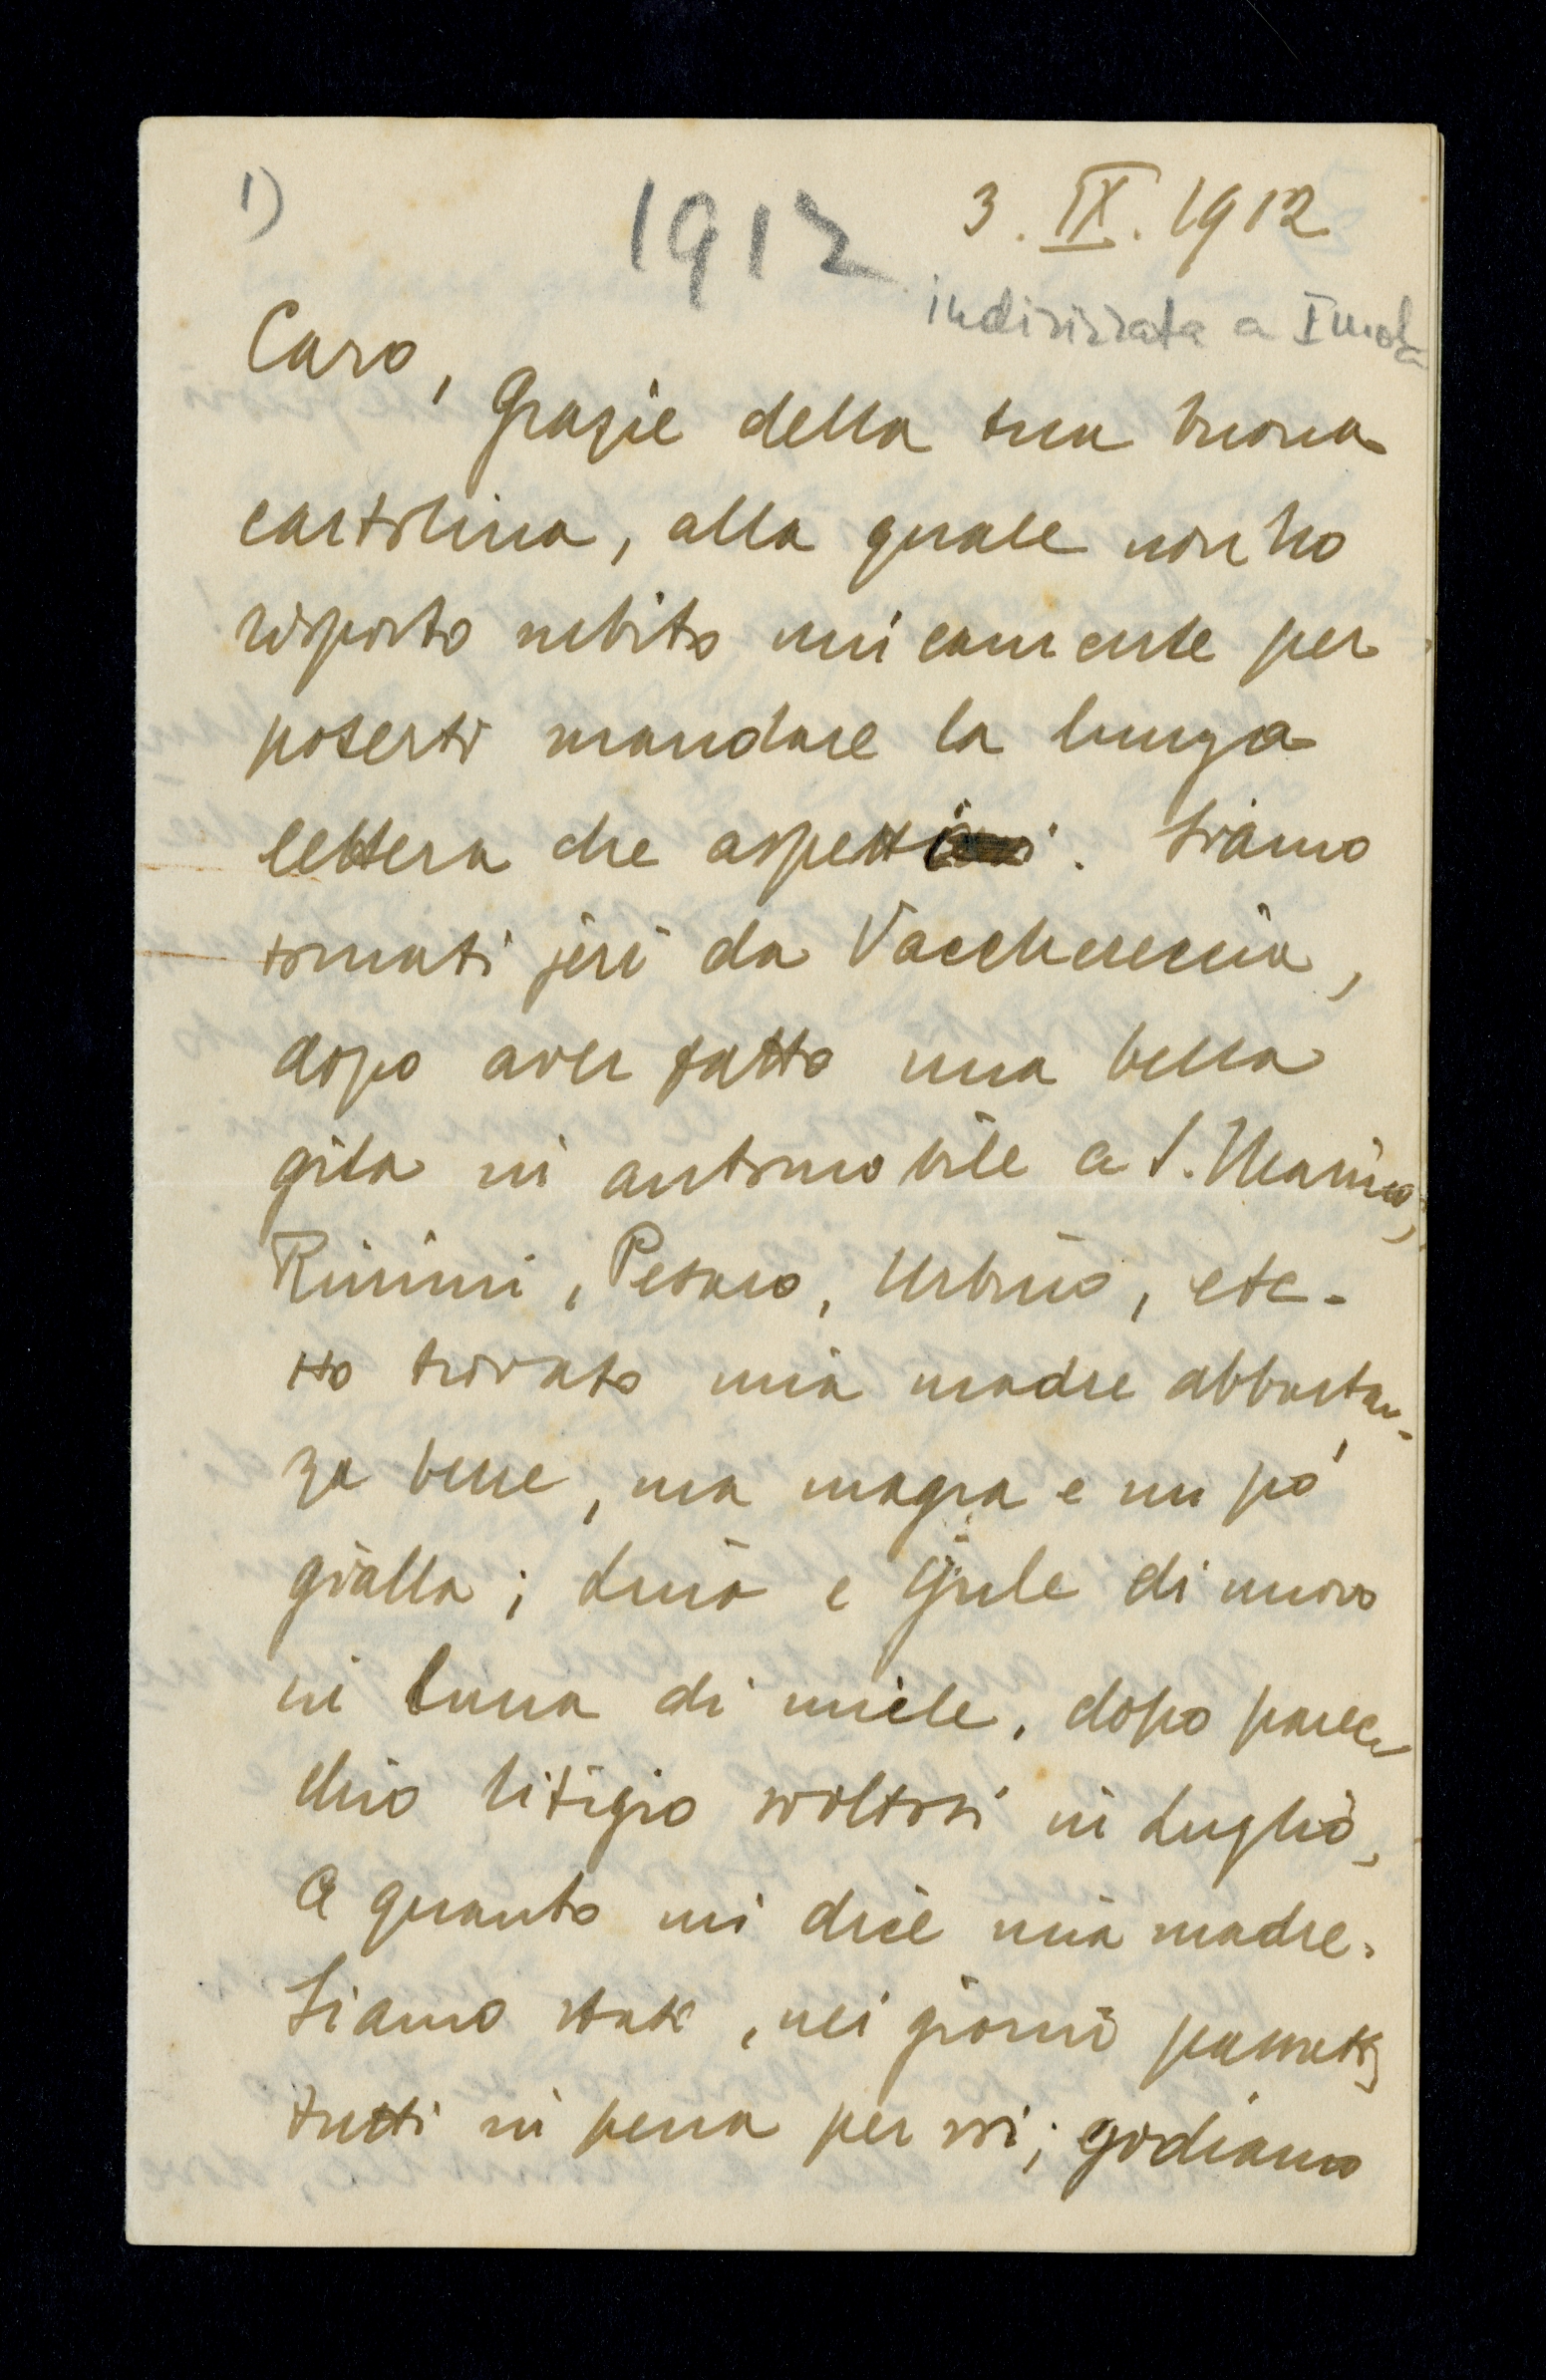 1)
1912
3. IX. 1912
indirizzata a Imola
Caro,
Grazie della tua buona
cartolina, alla quale non ho
risposto subito unicamente per
poterti mandare la lunga
lettera che aspetti. Siamo
tornati jeri da Vacchereccia,
dopo aver fatto una bella
gita in automobile a S. Marino,
Rimini, Pesaro, Urbino, etc.
Ho trovato mia madre abbastan-
za bene, ma magra e un pò
gialla; Livia e Giule di nuovo
in luna di miele, dopo parec
chio litigio svoltosi in Luglio,
a quanto mi dice mia madre.
Siamo stati, nei giorni passati,
tutti in pena per voi; godiamo